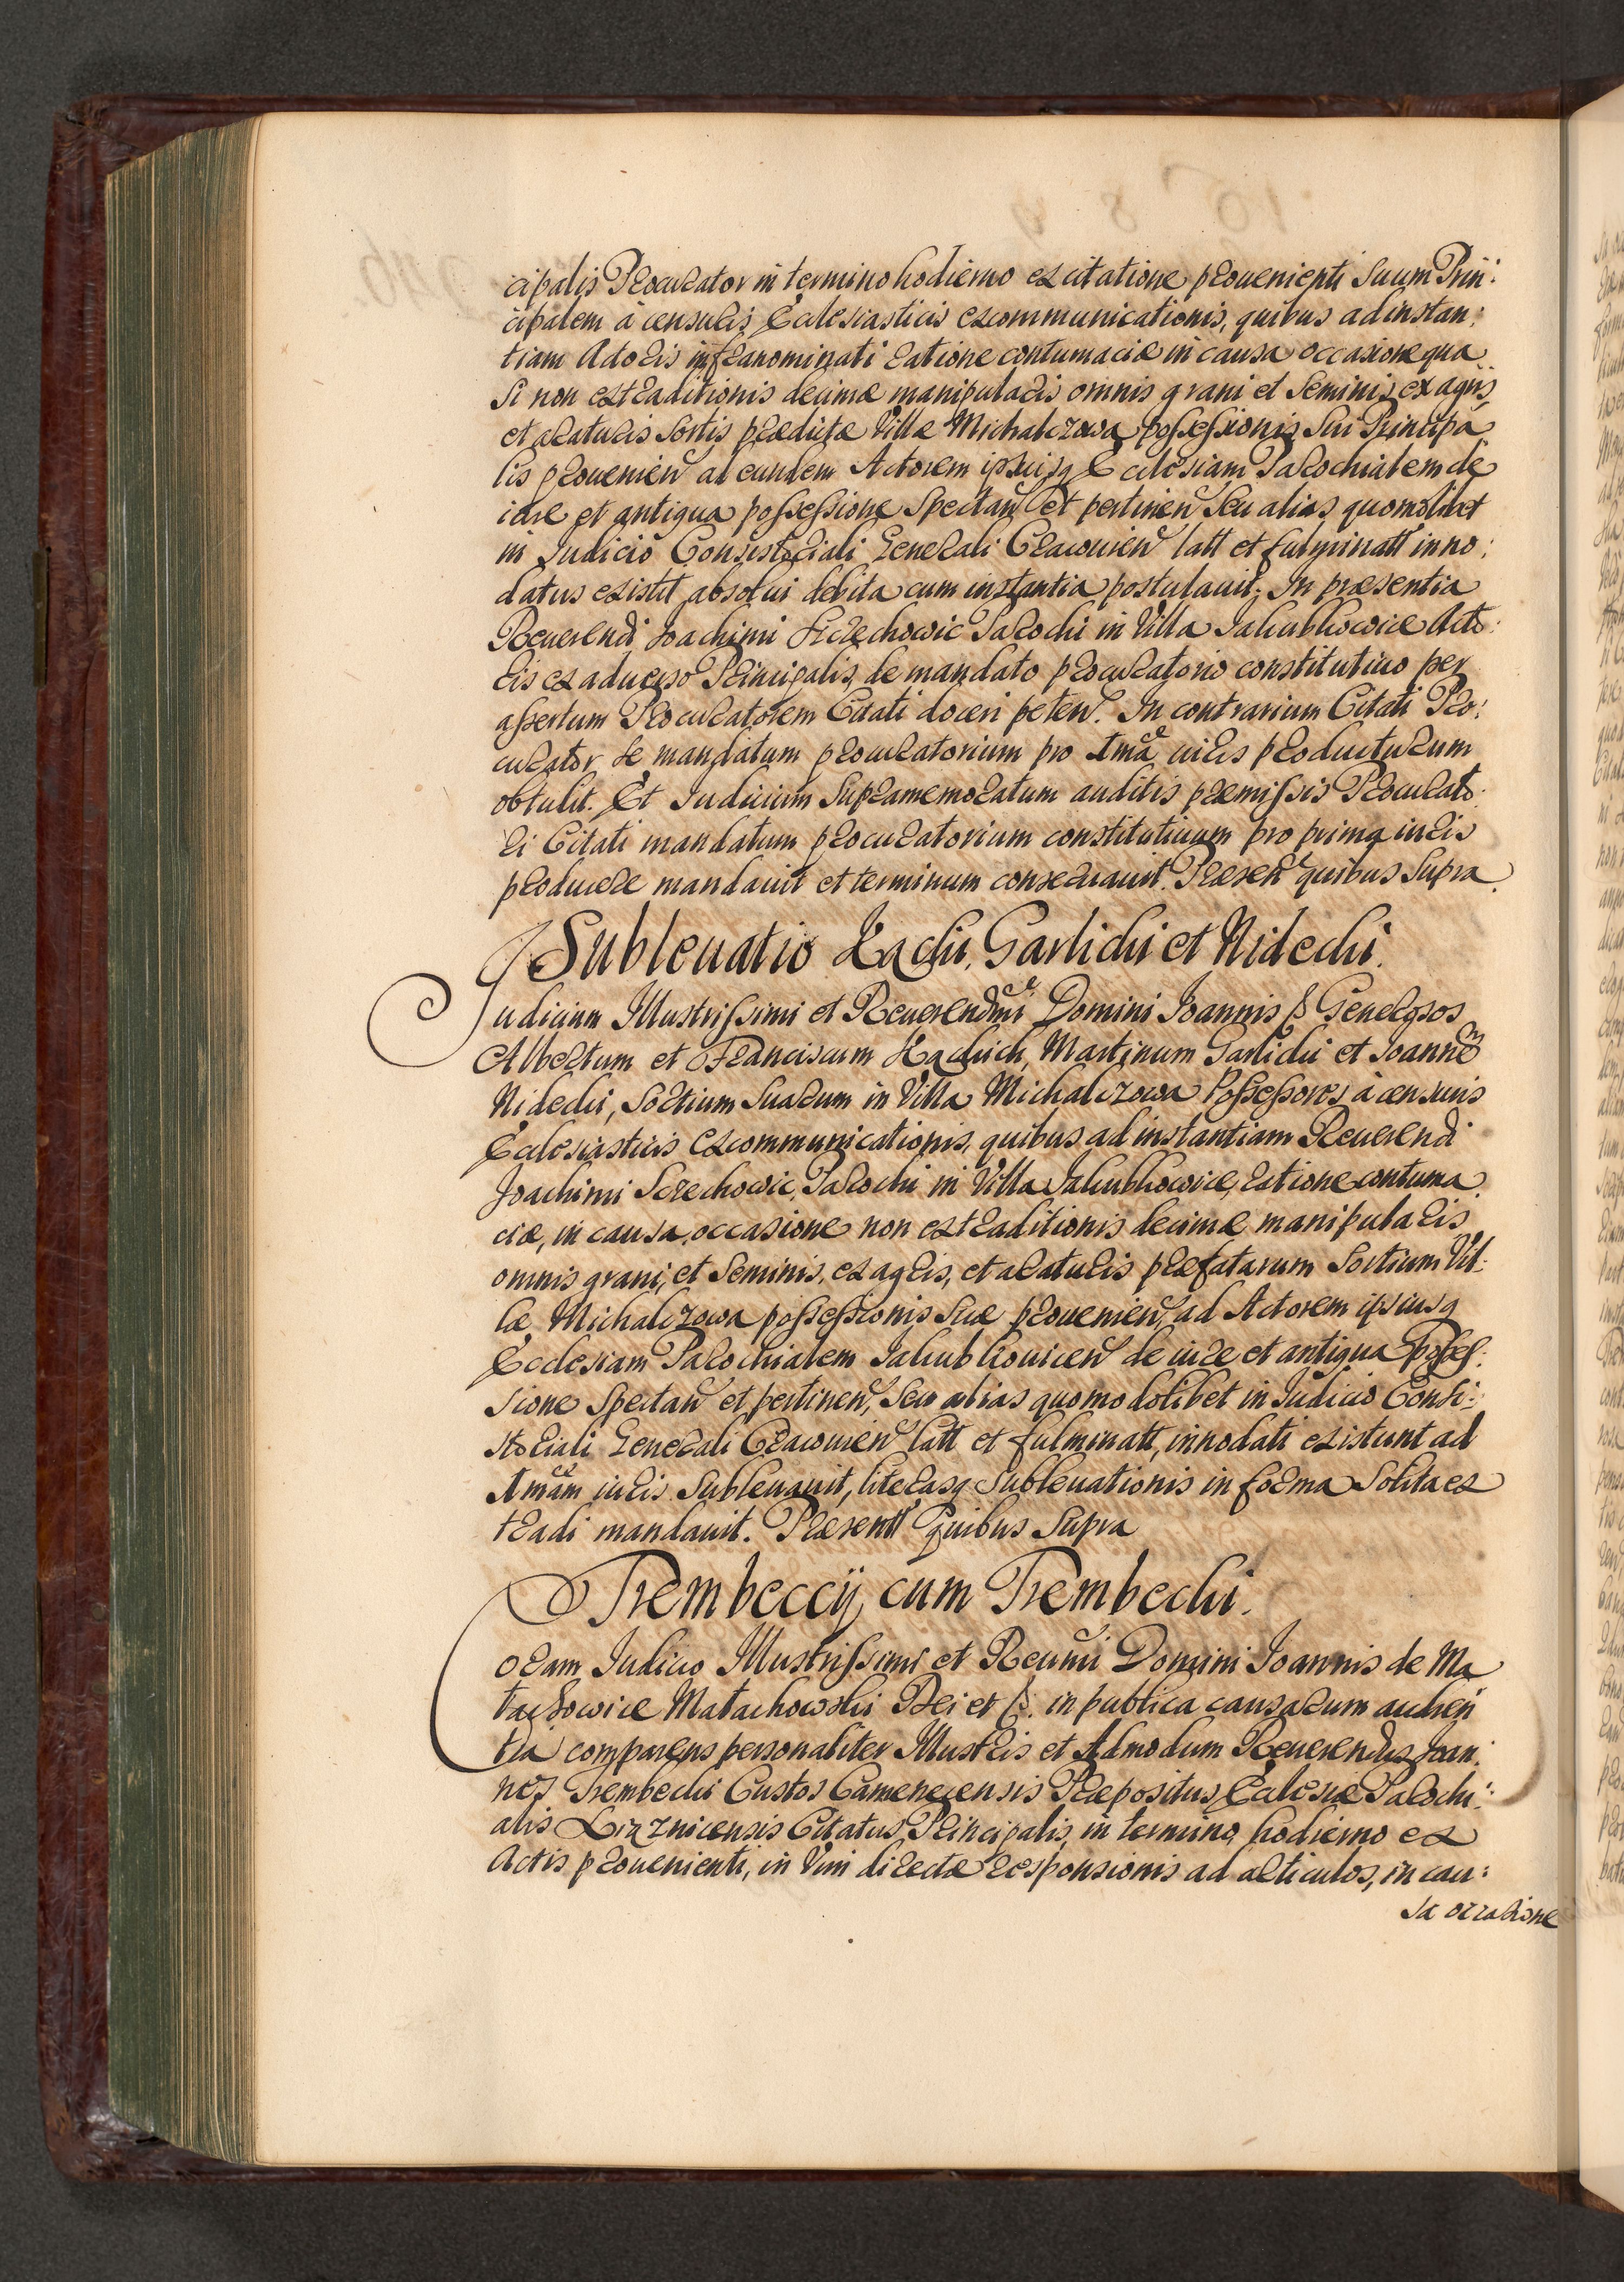 cipalis Procurator in termino hodierno ex citatione prouenienti Suum Prin:
cipalem à censuris Ecclesiasticis excommunicationis, quibus ad instan:
tiam Actoris infranominati ratione contumaciæ in causa occasione qua
si non extraditionis decimæ manipularis omnis grani et Seminis ex agris
et araturis Sortis prædictæ Villæ Michalczowa possessionis Sui Principa
lis prouenien ad eundem Actorem ipsiusq Ecclesiam Parochialem de
iure et antiqua possessione Spectan et pertinen Seu alias quomolibet
in Judicio Consistoriali Generali Cracouien latt et fulminatt inno:
datus existit absolui debita cum instantia postulauit; In præsentia
Reuerendi Joachimi Sczechowic Parochi in Villa Jakubkowice Acto:
ris ex aduerso Principalis, de mandato procuratorio constitutiuo per
assertum Procuratorem Citati doceri peten. In contrarium Citati Pro:
curator Se mandatum procuratorium pro Ima iuris producturum
obtulit. Et Judicium Supramemoratum auditis præmissis Procurato:
ri Citati mandatum procuratorium constitutiuum pro prima iuris
producere mandauit et terminum conseruauit. Præsen quibus Supra.
Subleuatio Kąckii, Garlicki et Nidecki.
Judicium Illustrissimi et Reuerendmi Domini Joannis & Generosos
Albertum et Franciscum Kąckich, Martinum Garlicki et Joannem
Nidecki, Sortium Suarum in Villa Michalczowa Possessores à censuris
Ecclesiasticis Excommunicationis, quibus ad instantiam Reuerendi
Joachimi Sczechowic, Parochi in Villa Jakubkowice, ratione contuma
ciæ, in causa, occasione non extraditionis decimæ manipularis
omnis grani, et Seminis, ex agris, et araturis præfatarum Sortium Vil:
læ Michalczowa possessionis Suæ prouenien, ad Actorem ipsiusq
Ecclesiam Parochialem Jakubkouicen de iure et antiqua posses:
sione Spectan et pertinen, Seu alias quomodolibet in Judicio Consi:
storiali Generali Cracouien latt et fulminatt, innodati existunt ad
Imam iuris Subleuauit, literasq Subleuationis in forma Solita ex
tradi mandauit. Præsentt quibus Supra
Trembeccy cum Trembecki.
Coram Judicio Illustrissimi et Reumi Domini Joannis de Ma
łachowice Małachowski Dei et &. in publica causarum audien
tia comparens personaliter Illustris et Admodum Reuerendus Joan:
nes Trembecki Custos Camenecensis Præpositus Ecclesiæ Parochi:
alis Citatus Principalis, in termino hodierno ex
Actis prouenienti, in Vim directæ responsionis ad articulos, in cau:
sa occasione